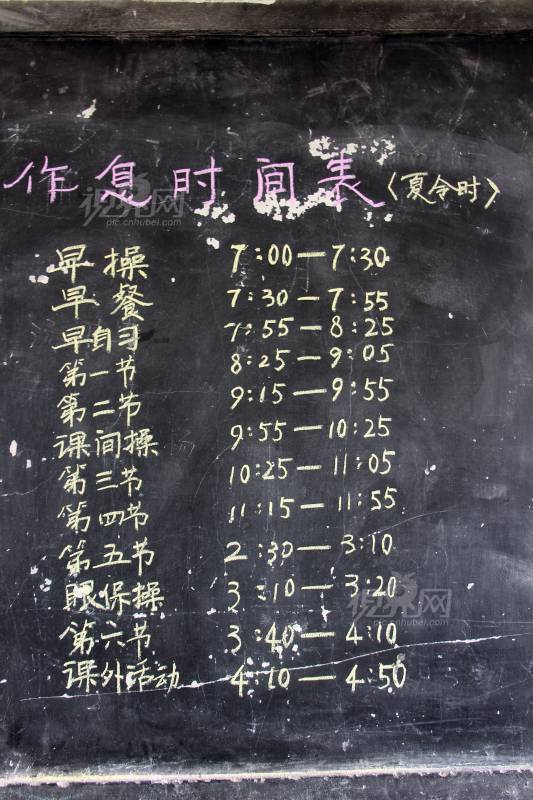 作息时间表〈夏令时〉
早操 7:00—7:30
早餐 7:30—7:55
早自习 7:55—8:25
第一节 8:25—9:05
第二节 9:15—9:55
课间操 9:55—10:25
第三节 10:25—11:05
第四节 11:15—11:55
第五节 2:30—3:10
眼保操 3:10—3:20
第六节 3:40—4:10
课外活动 4:10—4:50
视界网
pic.cnhubei.com
视界网
pic.cnhubei.com